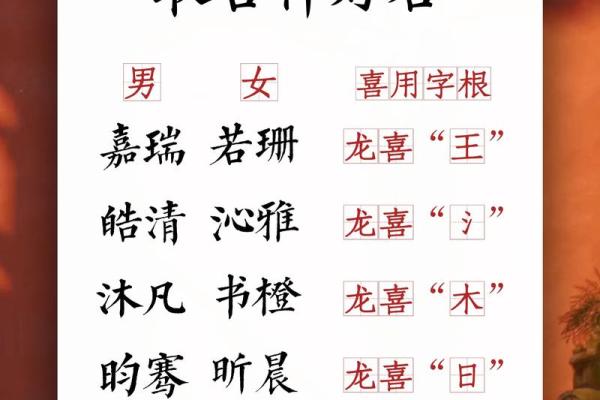 男 女 喜用字根
嘉瑞 若珊 龙喜“王”
皓清 沁雅 龙喜“氵”
沐凡 书橙 龙喜“木”
昀骞 昕晨 龙喜“日”